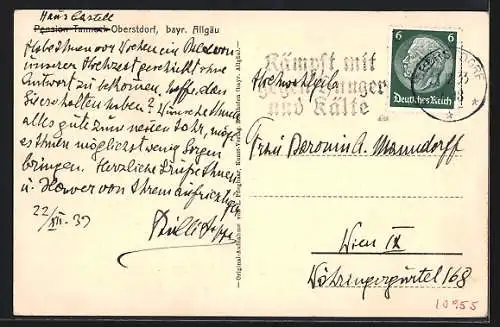 Haus Castell
Pension Tannach Oberstdorf, bayr. Allgäu
Habe Ihnen vor Wochen ein
unserer Hochzeit geschickt ohne
Antwort zu bekommen. Hoffe, dass
Sie es erhalten haben? Wünsche Ihnen
alles gute zum neuen Jahr, möge
es Ihnen möglichst wenig Sorgen
bringen. Herzliche Grüße Ihnen
u. von Ihrem aufrichtigen
22/XII.-33
Kämpft mit
gegen Hunger
und Kälte
6 6
Deutsches Reich
Hochwohlgeb.
Frau Baronin A.
Wien IX
Währingergürtel 168
10955